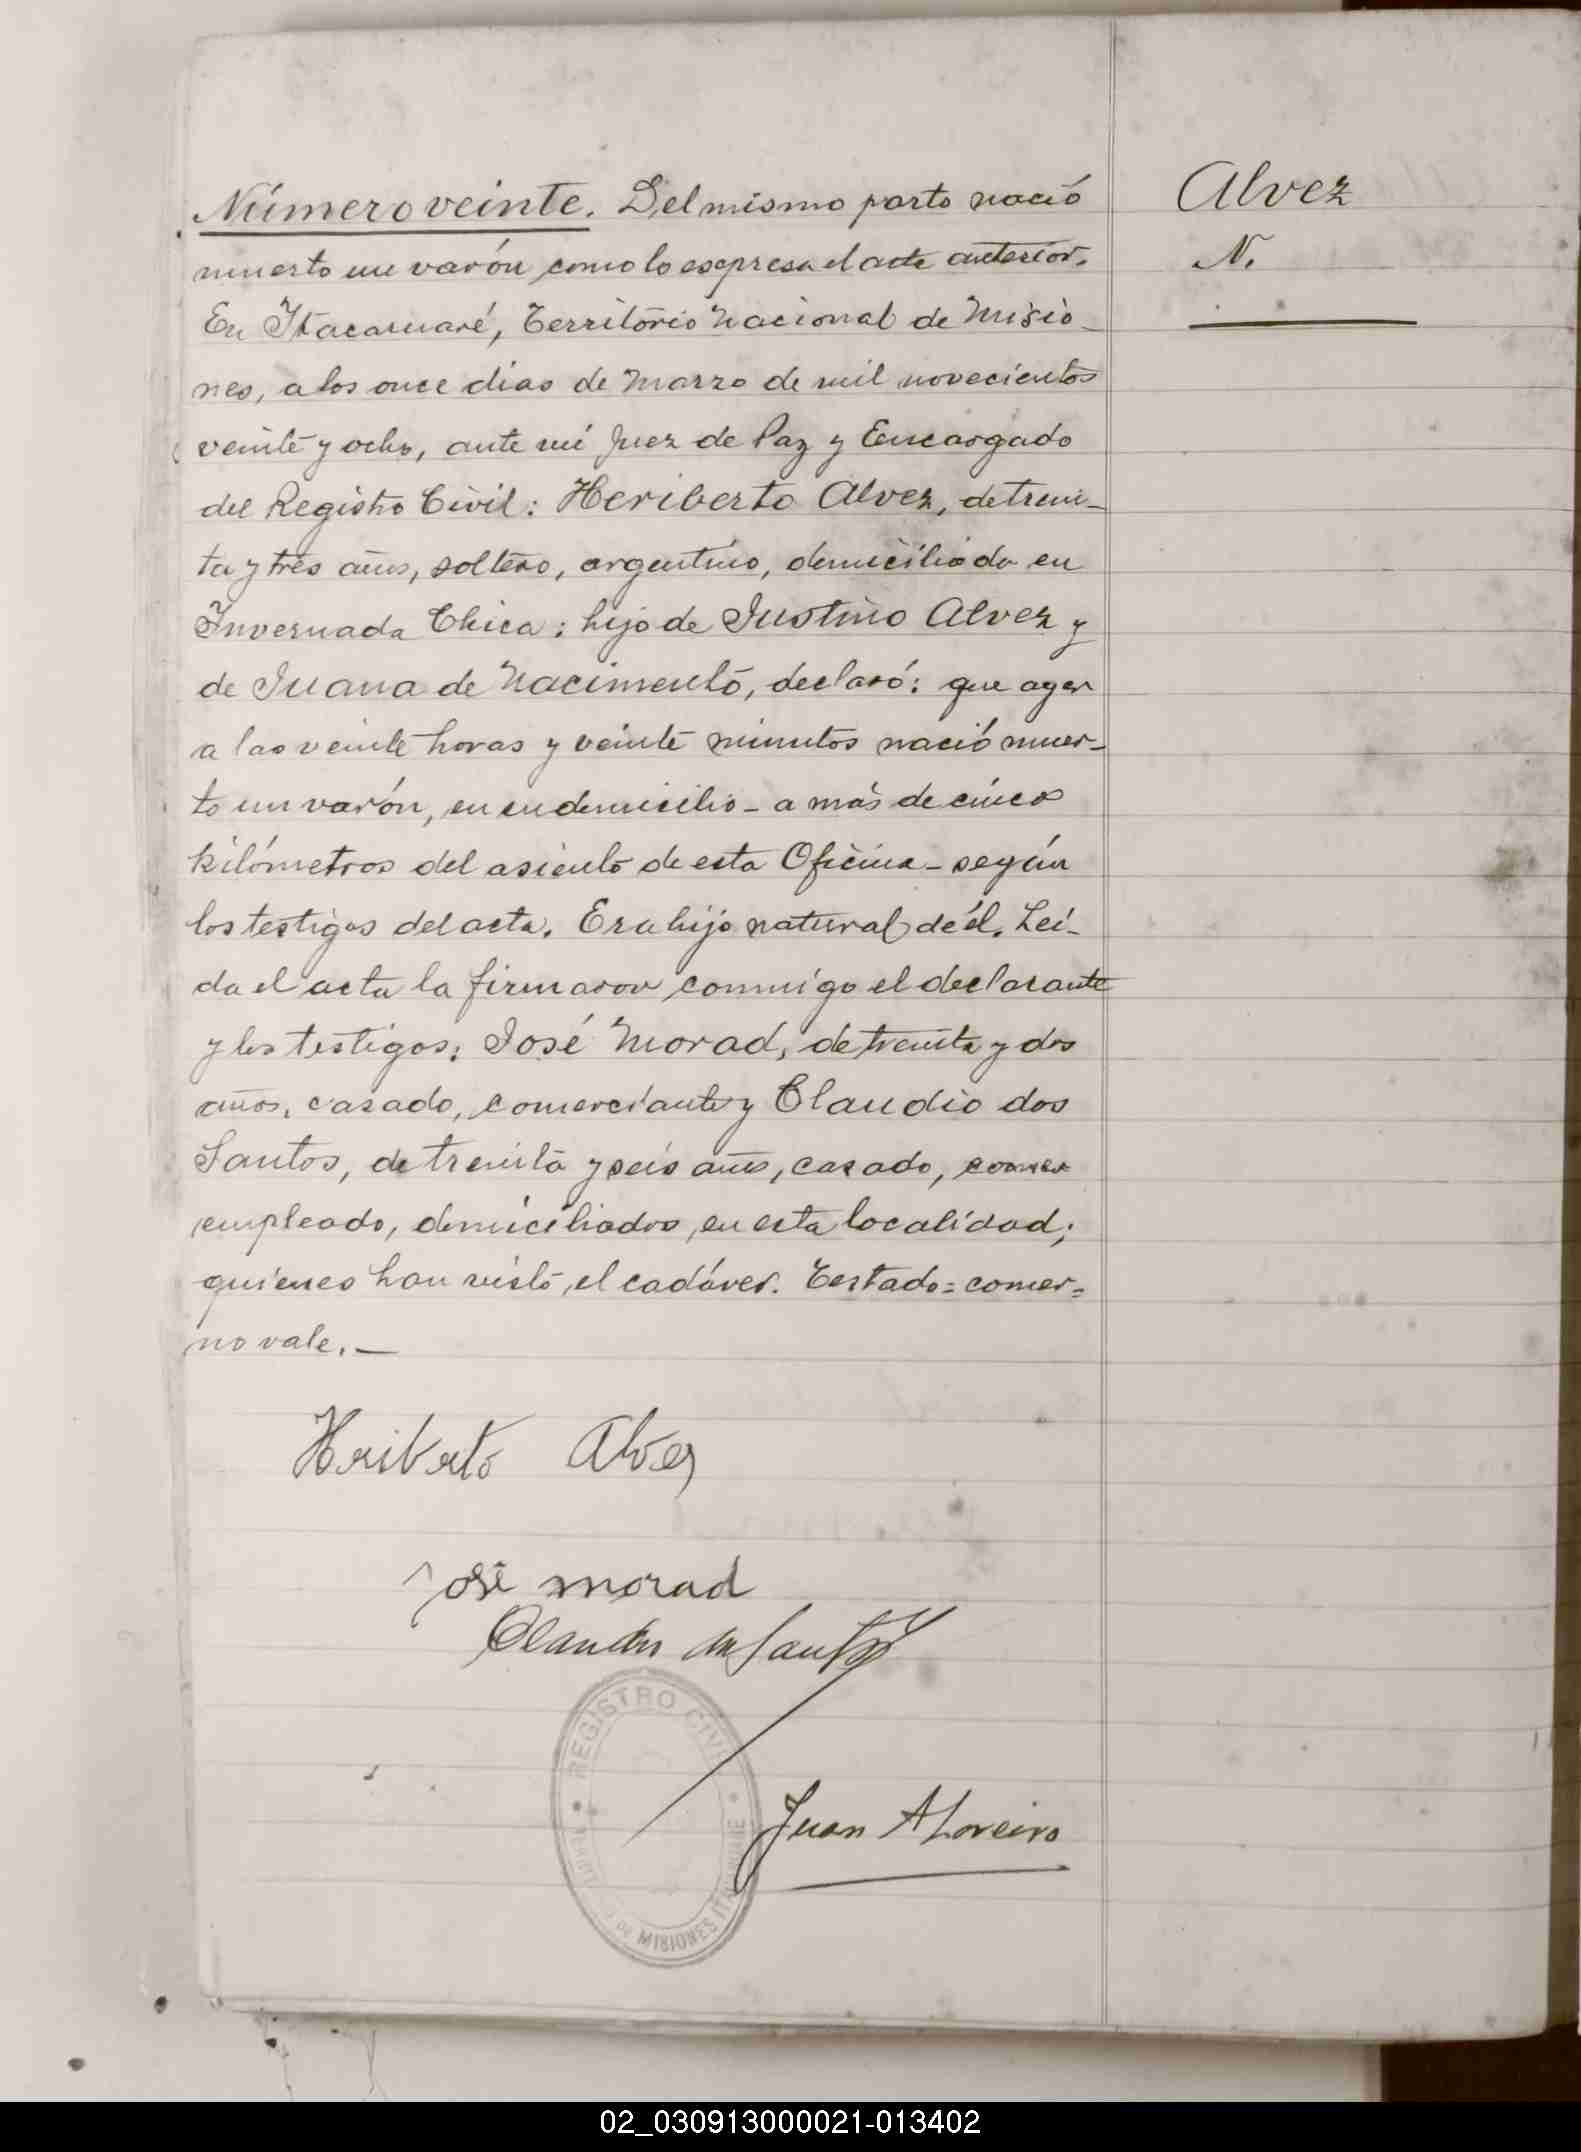 Número veinte. Del mismo parto nació
muerto un varón como lo espresa el acta anterior.
En Itacaruaré, Territorio Nacional de Misio-
nes, a los once dias de Marzo de mil novecientos
veinte y ocho, ante mí Juez de Paz y Encargado
del Registro Civil: Heriberto Alvez, de trein-
ta y tres años, soltero, argentino, domiciliado en
Invernada Chica; hijo de Justino Alvez y
de Juana de Nacimento, declaró: que ayer
a las veinte horas y veinte minutos nació muer-
to un varón, en su domicilio - a más de cinco
kilómetros del asiento de esta Oficina - según
los testigos del acta. Era hijo natural de él. Leí-
da el acta la firmaron conmigo el declarante
y los testigos: José Morad, de treinta y dos
años, casado, comerciante y Claudio dos
Santos, de treinta y seis años, casado, comer
empleado, domiciliados en esta localidad;
quienes han visto el cadáver. Testado = comer =
no vale. —
Heriberto Alvez
José morad
Claudio dos Santos
Juan A Loreiro
REGISTRO CIVIL
DE MISIONES
Alvez
N.
02_030913000021-013402